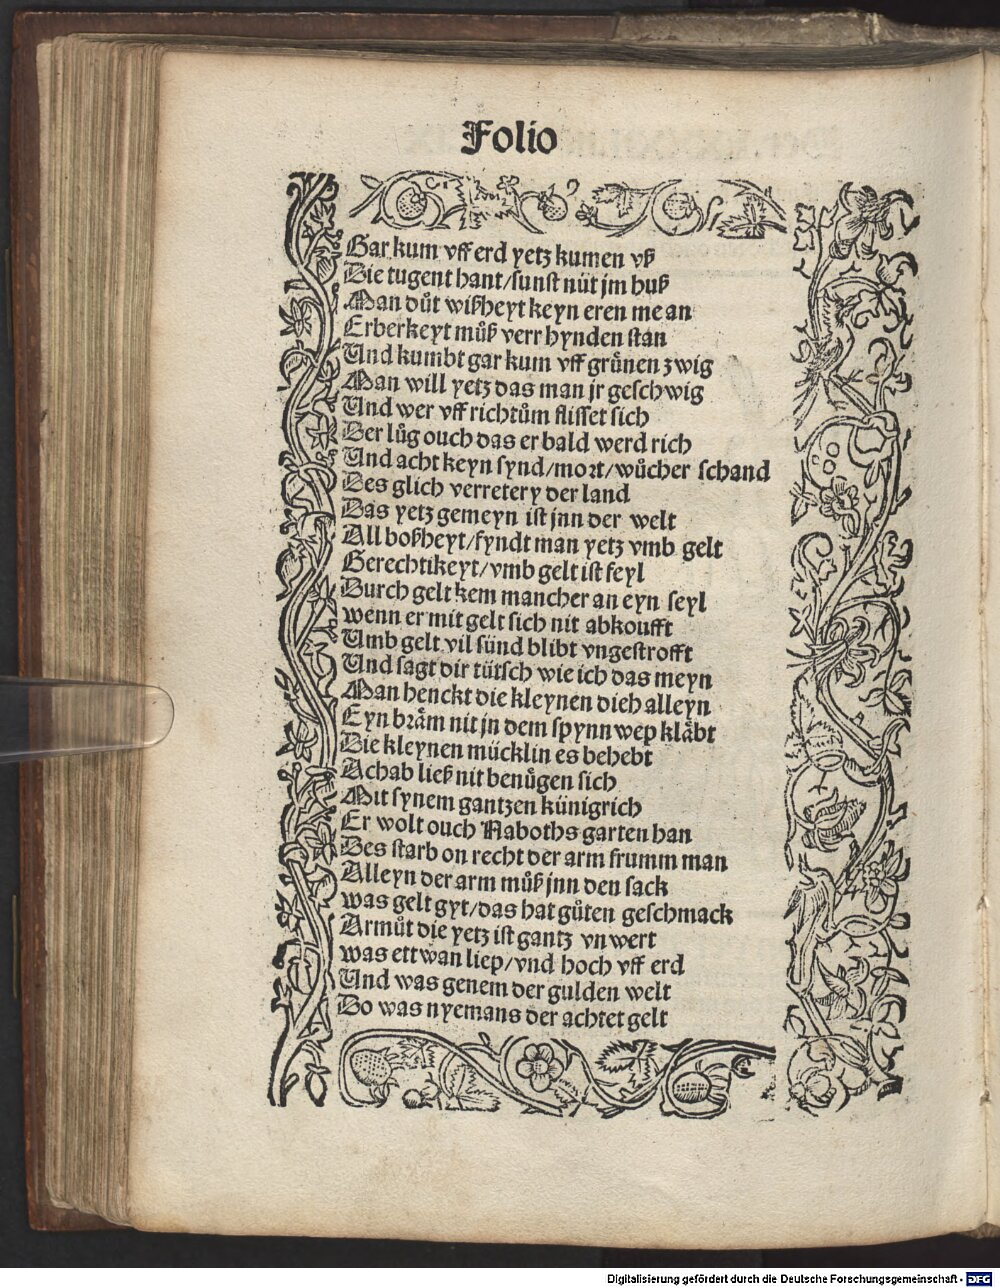 Folio
Gar kum vff erd yetz kumen vß
Die tugent hant/sunst nüt jm huß
Man důt wißheyt keyn eren me an
Erberkeyt můß verr hynden stan
Und kumbt gar kum vff grůnen zwig
Man will yetz das man jr geschwig
Und wer vff richtům flisset sich
Der lůg ouch das er bald werd rich
Und acht keyn synd/mort/wůcher schand
Des glich verretery der land
Das yetz gemeyn ist jnn der welt
All boßheyt/fyndt man yetz vmb gelt
Gerechtikeyt/vmb gelt ist feyl
Durch gelt kem mancher an eyn seyl
wenn er mit gelt sich nit abkoufft
Umb gelt vil sünd blibt vngestrofft
Und sagt dir tütsch wie ich das meyn
Man henckt die kleynen dieb alleyn
Eyn bräm nit jn dem spynnwep kläbt
Die kleynen mücklin es behebt
Achab ließ nit benůgen sich
Mit synem gantzen künigrich
Er wolt ouch Naboths garten han
Des starb on recht der arm frumm man
Alleyn der arm můß jnn den sack
was gelt gyt/das hat gůten geschmack
Armůt die yetz ist gantz vnwert
was ettwan liep/vnd hoch vff erd
Und was genem der gulden welt
Do was nyemans der achtet gelt
Digitalisierung gefördert durch die Deutsche Forschungsgemeinschaft - DFG